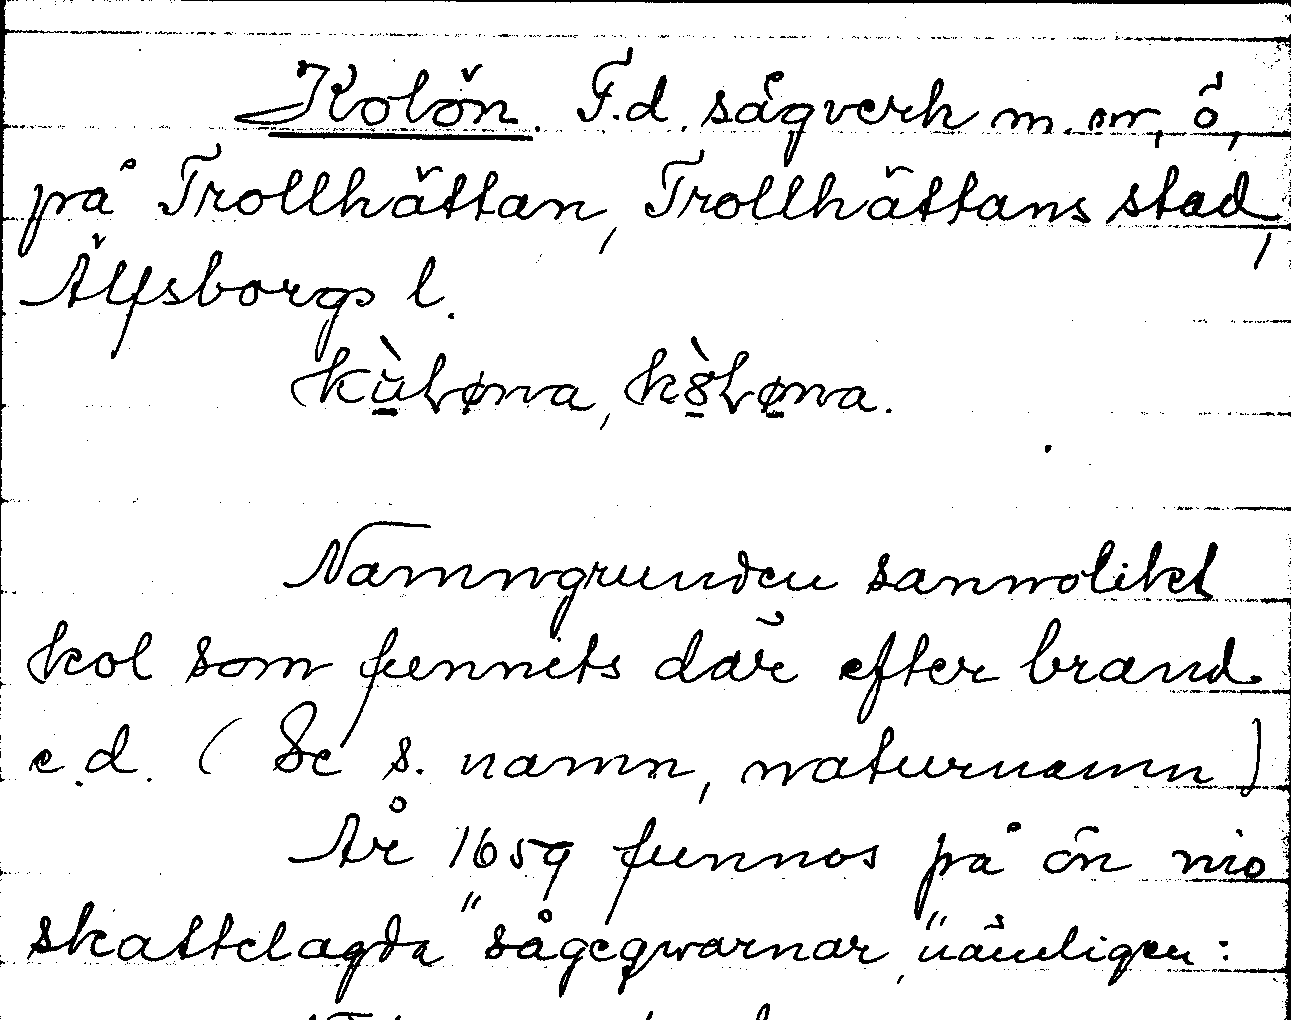 Kolön. F.d. sågverk m.m., ö,
på Trollhättan, Trollhättans stad,
Älfsborgs l.
Namngrunden sannolikt
kol som funnits där efter brand
e.d. (Se s. namn, naturnamn)
År 1659 funnos på ön nio
skattelagda "sågeqwarnar", nämligen: